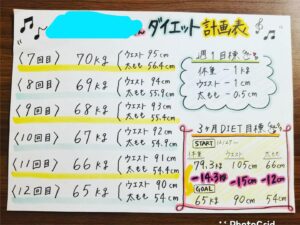 ん ダイエット 計画表
〈7回目〉 70kg (ウエスト 95cm
太もも 56.4cm
〈8回目〉 69kg (ウエスト 94cm
太もも 55.9cm
〈9回目〉 68kg (ウエスト 93cm
太もも 55.4cm
〈10回目〉 67kg (ウエスト 92cm
太もも 54.9cm
〈11回目〉 66kg (ウエスト 91cm
太もも 54.4cm
〈12回目〉 65kg (ウエスト 90cm
太もも 54cm
週1目標
体重 −1kg
ウエスト −1cm
太もも −0.5cm
3ヶ月DIET目標
START
体重 ウエスト 太もも
79.3kg 105cm 66cm
-14.3kg -15cm -12cm
GOAL
65kg 90cm 54cm
PhotoGrid